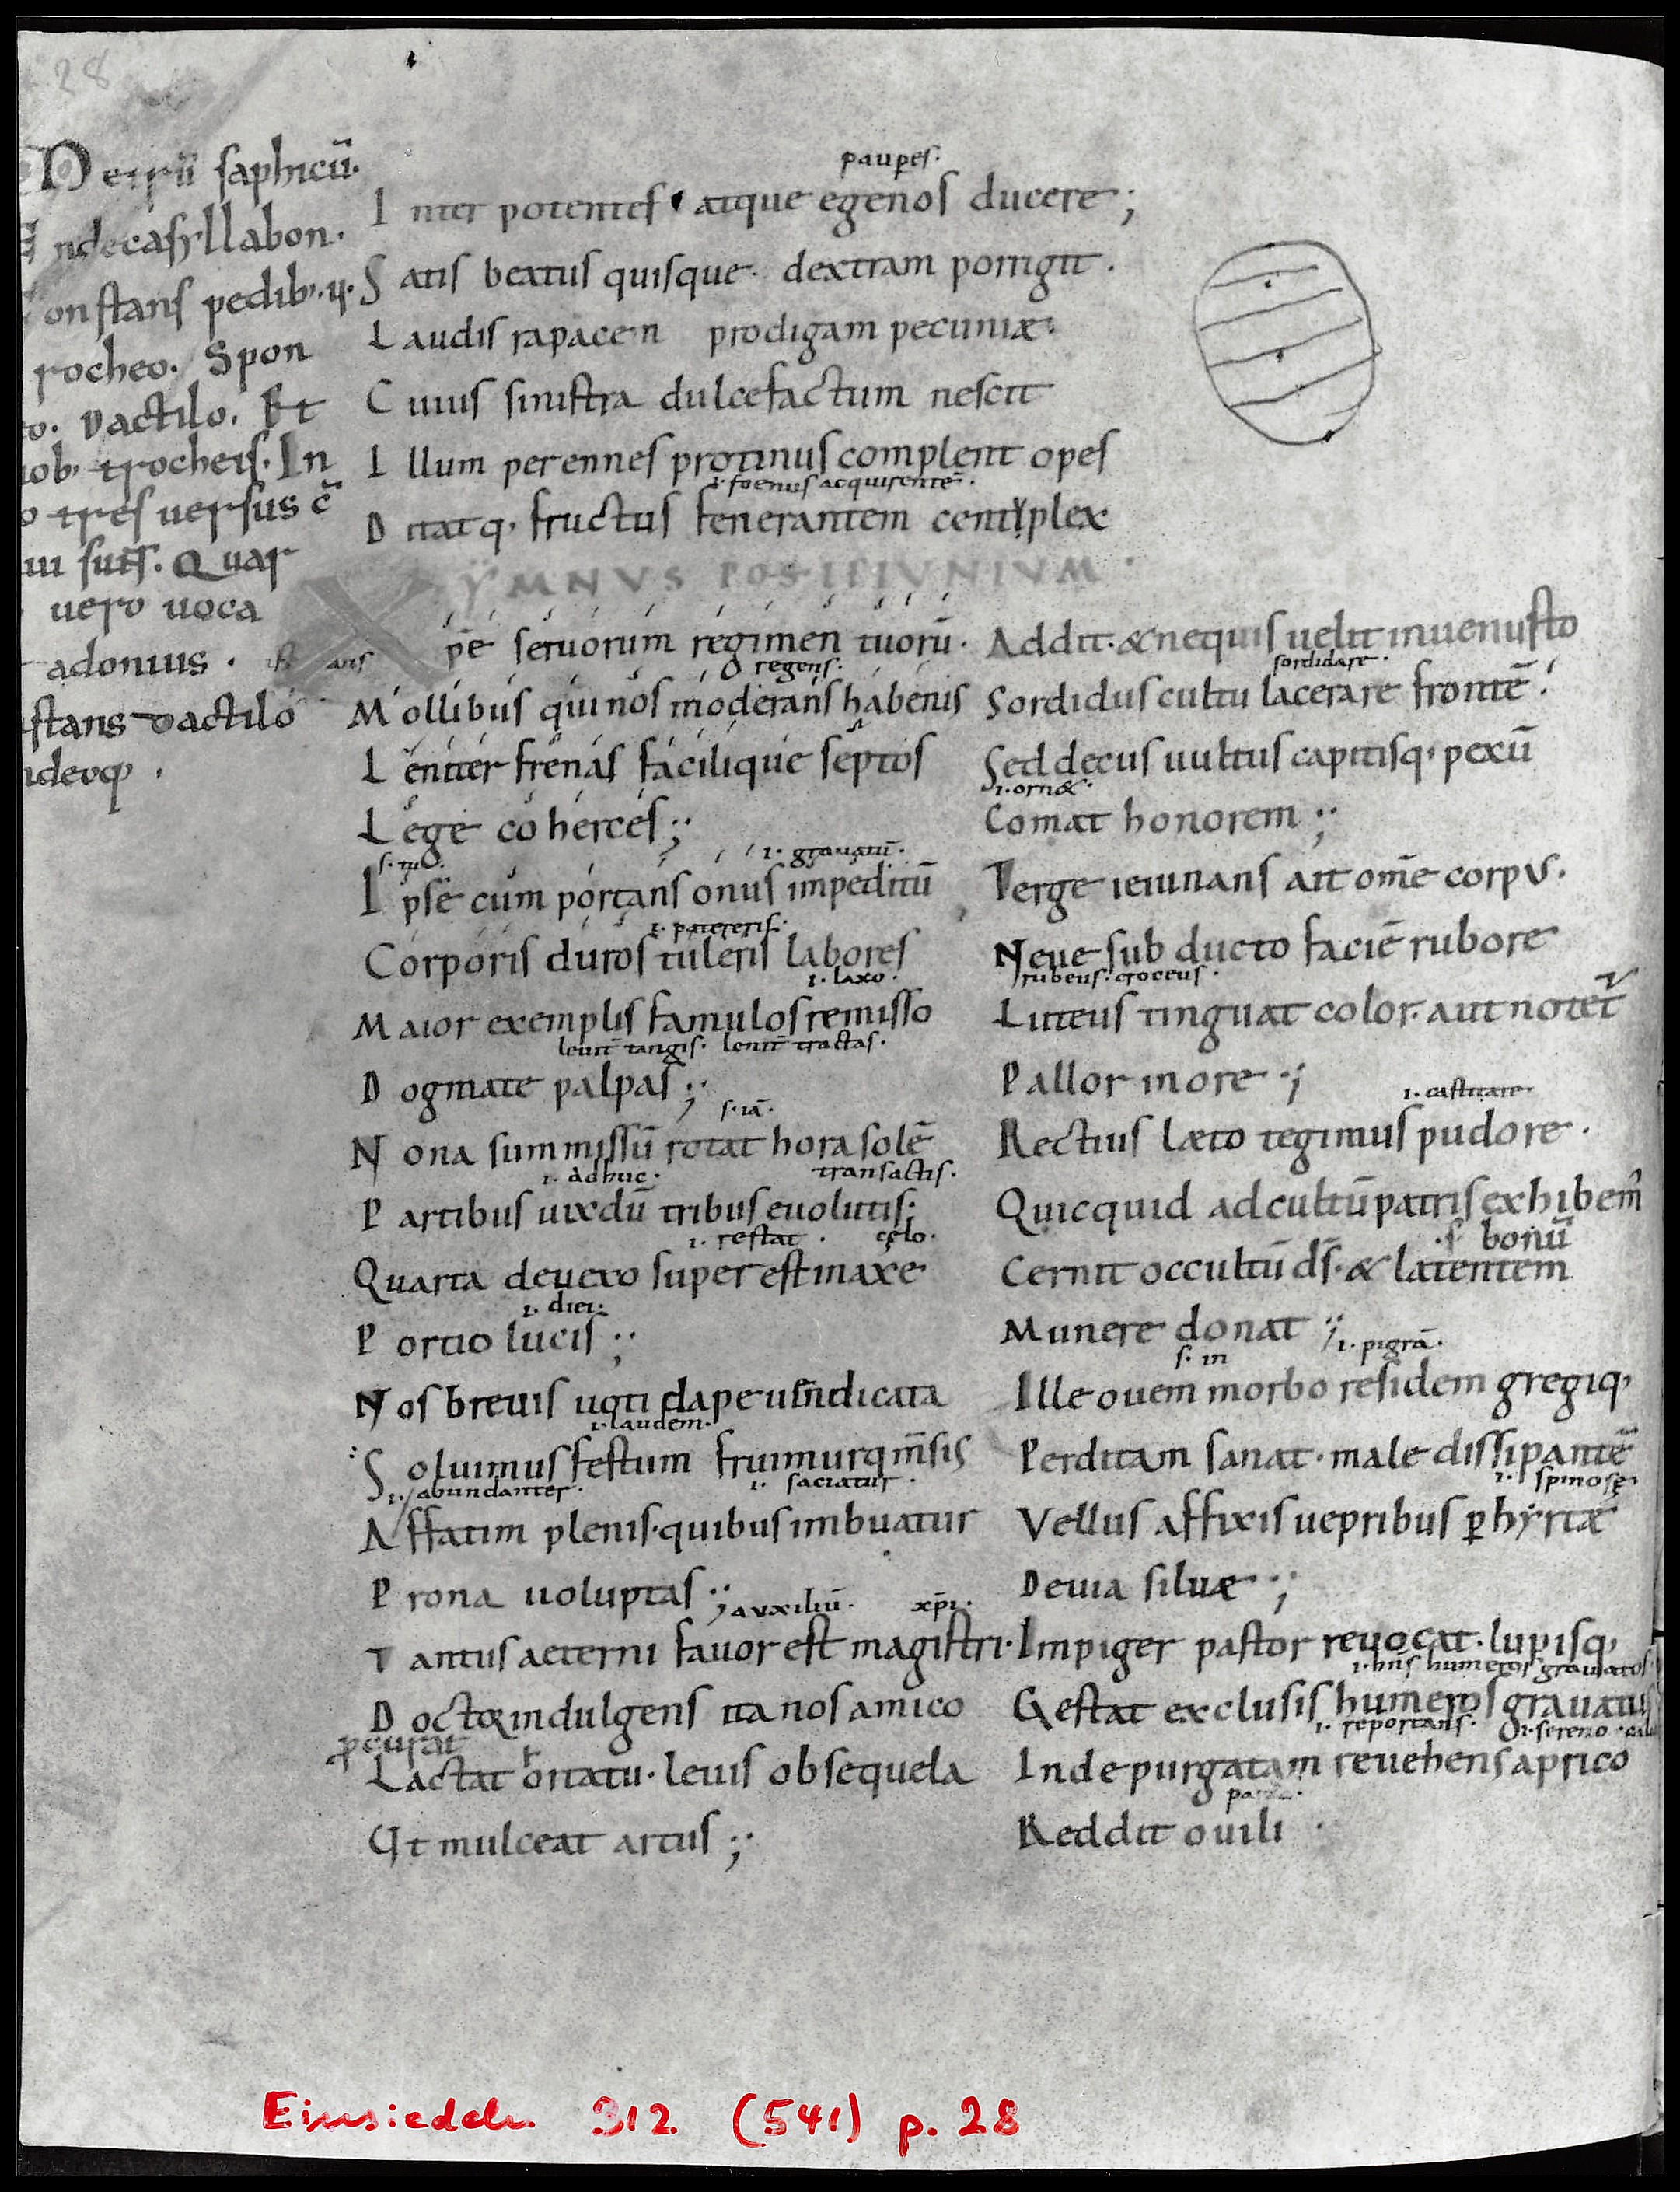 28
Metrū saphicū.
Endecasyllabon.
Constans pedib; .v.
rocheo. Spon
o. Dactilo. Et
ob; trocheis. In
o tres uersus c̄
ui sūt. Quar
uero uoca
adonius.
stans dactilo
ndeoq;.
paupes.
Inter potentes atque egenos ducere;
Satis beatus quisque. dextram porrigit.
Laudis rapacem prodigam pecuniæ.
Cuius sinistra dulcefactum nescit
Illum perennes protinus complent opes
i. foenus acquirentē.
Ditatq; fructus fenerantem centiplex
YMNVS POST IEIVNIVM.
Xpē seruorum regimen tuorū.
regens.
Mollibus qui nos moderans habenis
Leniter frenas facilique septos
Lege coherces;
s. tu
i. grauatū.
Ipse cum portans onus impeditū
i. patereris.
Corporis duros tuleris labores
i. laxo.
Maior exemplis famulos remisso
leuit̄ tangis. lenit̄ tractas.
Dogmate palpas;
s. iā.
Nona summissū rotat hora solē
i. adhuc. transactis.
Partibus uixdū tribus euolutis;
i. restat. cęlo.
Quarta deuexo super est in axe
i. diei.
Portio lucis;
Nos breuis uoti dape uindicata
i. laudem.
Soluimus festum fruimurq; mēsis
i. abundanter. i. saciatur.
Affatim plenis. quibus imbuatur
Prona uoluptas;
auxiliū. xp̄i.
Tantus aeterni fauor est magistri.
Doctor indulgens ita nos amico
pcurat
Lactat ortatu. leuis obsequela
Ut mulceat artus;
Addit. & nequis uelit inuenusto
sordidare.
Sordidus cultu lacerare frontē.
Sed decus uultus capitisq; pexū
i. orn&.
Comat honorem;
Terge ieiunans ait om̄e corpus.
Neue sub ducto faciē rubore
rubeus. croceus.
Luteus tinguat color. aut notet̄
Pallor in ore;
i. castitate
Rectius læto tegimus pudore.
Quicquid ad cultū patris exhibem̄
s. bonū
Cernit occultū d̄s. & latentem
Munere donat;
s. in i. pigrā.
Ille ouem morbo residem gregiq;
Perditam sanat. male dissipantē
i. spinosę
Vellus affixis uepribus p hyrtæ
Deuia siluæ;
Impiger pastor reuocat. lupisq;
humeros grauatos
Gestat exclusis humeros grauatus
i. reportans. i. sereno.
Inde purgatam reuehens aprico
Reddit ouili.
Einsiedeln 312 (541) p. 28